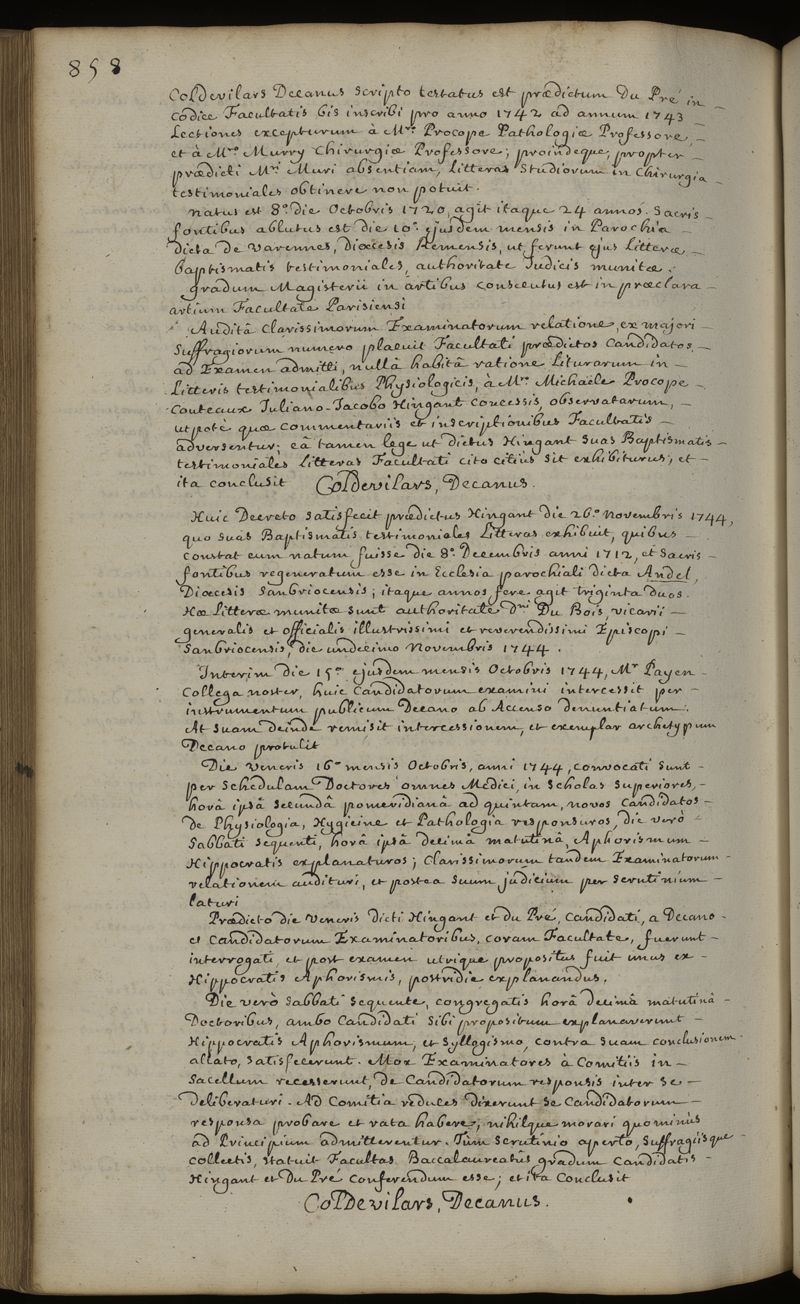 858
ColDevilars Decanus scripto testatus est prædictum Du Pré in –
codice Facultatis bis inscribi pro anno 1742 ad annum 1743
Lectiones excepturum à Mro. Procope Pathologiæ Professore, –
et à Mro. Murry Chirurgiæ Professore; proindeque, propter –
prædicti Mri. Muri absentiam, Litteras Studiorum in Chirurgia –
testimoniales obtinere non potuit.
natus est 8º. die Octobris 1720, agit itaque 24 annos. Sacris –
fontibus ablutus est die 10º. ejusdem mensis in Parochia
dicta de Varennes, Diœcesis Remensis, ut ferunt ejus Litteræ –
baptismatis testimoniales, authoritate Judicis munitæ.
gradum Magisterii in artibus consecutus est in præclara –
artium Facultate Parisiensi
Auditâ Clarissimorum Examinatorum relatione, ex majori –
Suffragiorum numero placuit Facultati prædictos Candidatos –
ad Examen admitti, nullâ habitâ ratione Liturarum in –
Litteris testimonialibus Physiologicis, à Mro. Michaële Procope –
Couteaux Juliano-Jacobo Hingant concessis, observatarum, –
utpote quæ commentariis et inscriptionibus Facultatis –
adversentur; eâ tamen lege ut dictus Hingant suas Baptismatis –
testimoniales Litteras Facultati cito citius sit exhibiturus; et –
ita conclusit ColDevilars, Decanus.
Huic Decreto satisfecit prædictus Hingant die 26º. Novembris 1744,
quo suas Baptismatis testimoniales Litteras exhibuit, quibus –
constat eum natum fuisse die 8º. Decembris anni 1712, et Sacris –
fontibus regeneratum esse in Ecclesia parochiali dicta Andel,
Diœcesis Sanbriocensis; itaque annos fere agit triginta duos.
Hæ Litteræ munitæ sunt authoritate dni. Du Bois, vicarii –
generalis et officialis illustrissimi et reverendissimi Episcopi –
Sanbriocensis, die undecimo Novembris 1744.
Interim die 15º. ejusdem mensis Octobris 1744, Mr. Payen –
Collega noster, huic Candidatorum examini intercessit per –
instrumentum publicum Decano ab Accenso denuntiatum.
At suam deinde remisit intercessionem, et exemplar archetypum
Decano protulit
Die Veneris 16º. mensis Octobris, anni 1744, convocati sunt –
per Schedulam Doctores omnes Medici, in Scholas Superiores, –
horâ ipsâ secundâ pomeridianâ ad quintam, novos Candidatos –
de Physiologia, Hygieine et Pathologia responsuros, die verò –
Sabbati sequenti, horâ ipsâ decimâ matutinâ, Aphorismum –
Hippocratis explanaturos; Clarissimorum tandem Examinatorum –
relationem audituri, et postea suum judicium per scrutinium –
laturi
Prædicto die Veneris dicti Hingant et du Pré, Candidati, a Decano –
et Candidatorum Examinatoribus, coram Facultate, fuerunt –
interrogati, et post examen utrique propositus fuit unus ex –
Hippocratis Aphorismis, postridie explanandus.
Die verò Sabbati sequente, congregatis horâ decimâ matutinâ –
Doctoribus, ambo Candidati sibi propositum explanaverunt –
Hippocratis Aphorismum, et syllogismo, contra suam conclusionem –
allato, satisfecerunt. Mox Examinatores à Comitiis in –
Sacellum recesserunt, de Candidatorum responsis inter se –
deliberaturi. Ad Comitia reduces dixerunt se Candidatorum –
responsa probare et rata habere, nihilque morari quominùs
ad Principium admitterentur. Tùm Scrutinio aperto, suffragiisque –
collectis, statuit Facultas Baccalaureatûs gradum Candidatis –
Hingant et Du Pré conferendum esse; et ita Conclusit
ColDevilars, Decanus.